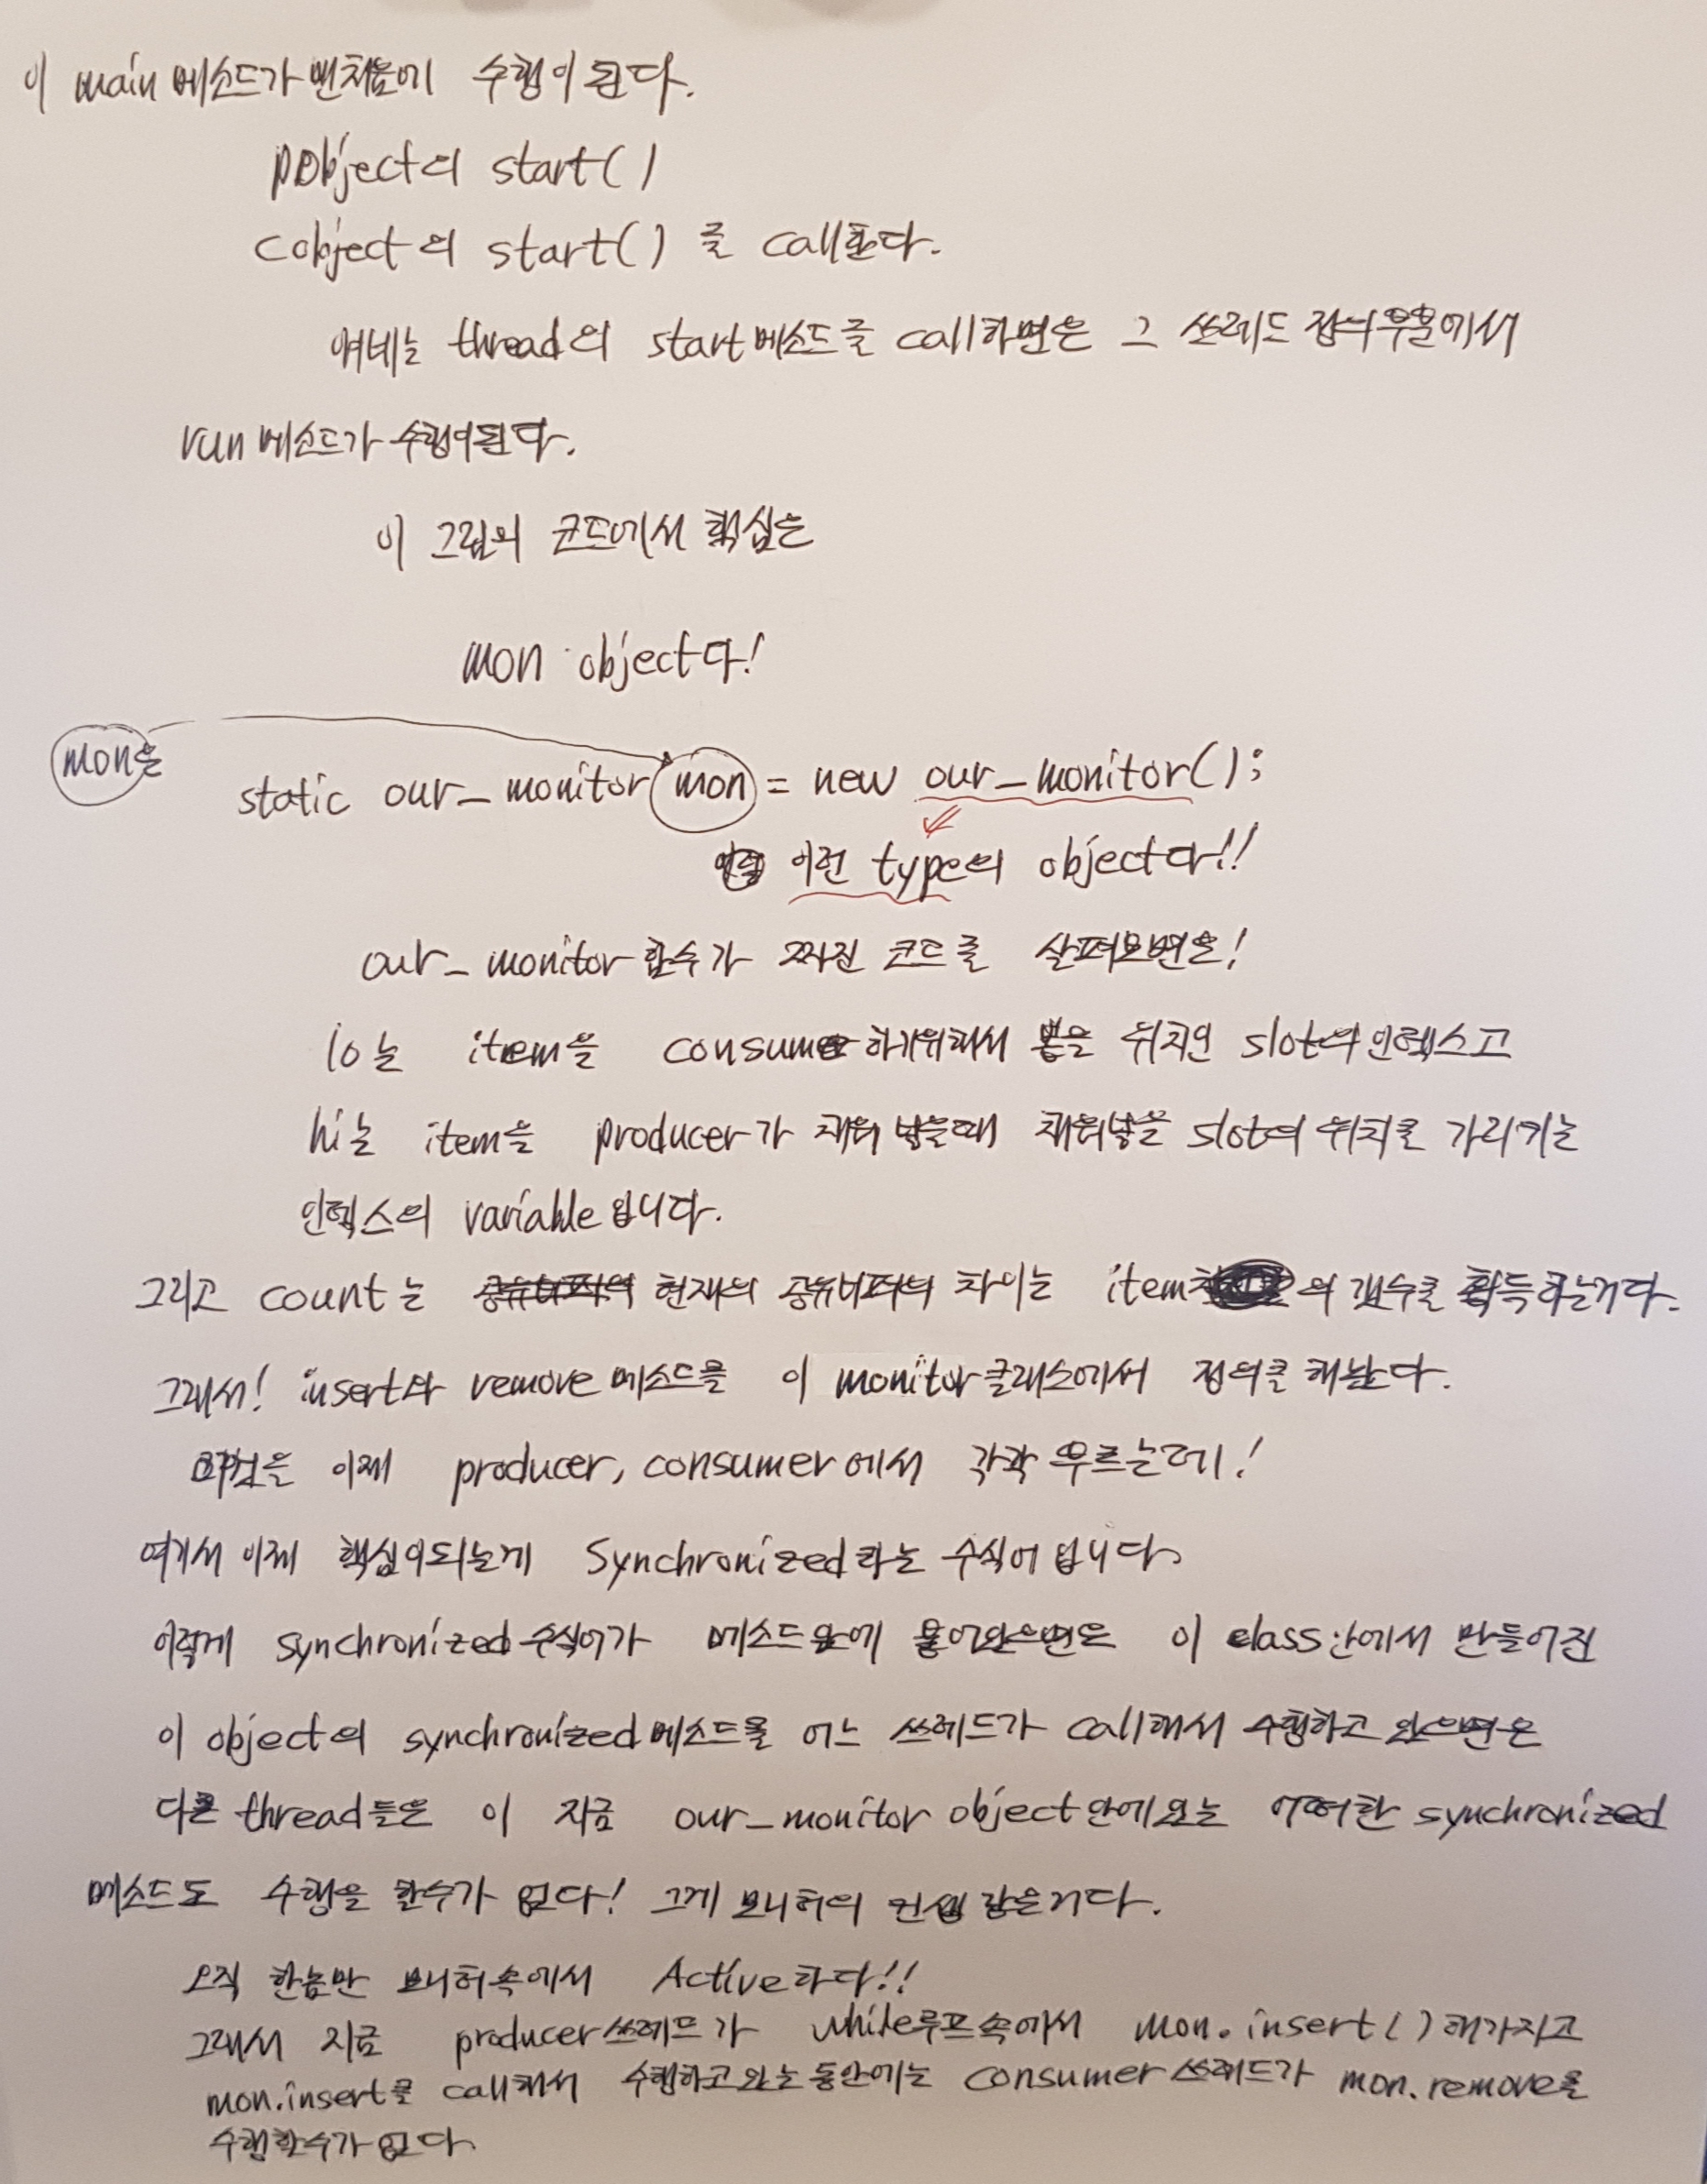 이 main메소드가 맨처음에 수행이 된다.
pObject의 start()
cobject의 start()를 call한다.
얘네는 thread의 start메소드를 call하면은 그 쓰레드 정의부분에서
run메소드가 수행이된다.
이 그림의 코드에서 핵심은
mon object다!
mon은
static our_monitor mon = new our_monitor();
이런 type의 object다!!
our_monitor함수가 짜진 코드를 살펴보면은!
lo는 item을 consume하기위해서 뽑을 위치인 slot의 인덱스고
hi는 item을 producer가 채워 넣을때 채워넣을 slot의 위치를 가리키는
인덱스의 variable입니다.
그리고 count는 공유버퍼의 현재의 공유버퍼의 차이는 item의 갯수를 획득하는거다.
그래서! insert와 remove메소드를 이 monitor클래스에서 정의를 해놨다.
이제 producer, consumer에서 각각 부르는데!
여기서 이제 핵심이되는게 Synchronized라는 수식어 입니다.
이렇게 synchronized수식어가 메소드앞에 붙어있으면은 이 class안에서 만들어진
이 object의 synchronized메소드를 어느 쓰레드가 call해서 수행하고 있으면은
다른 thread들은 이 지금 our_monitor object안에있는 어떠한 synchronized
메소드도 수행을 할수가 없다! 그게 모니터의 컨셉 같은거다.
오직 한놈만 모니터속에서 Active하다!!
그래서 지금 producer쓰레드가 while루프속에서 mon.insert()해가지고
mon.insert를 call해서 수행하고있는 동안에는 consumer쓰레드가 mon.remove를
수행할수가 없다.